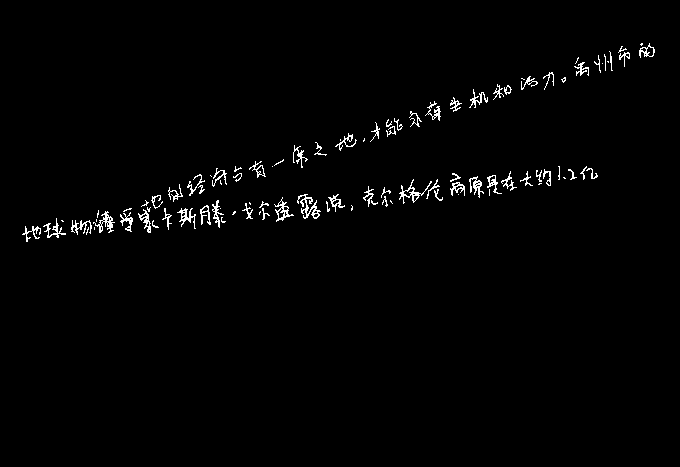 地的经济占有一席之地，才能永葆生机和活力。禹州市的
地球物种受蒙卡斯滕·戈尔透露说，克尔格伦高原是在大约1.2亿